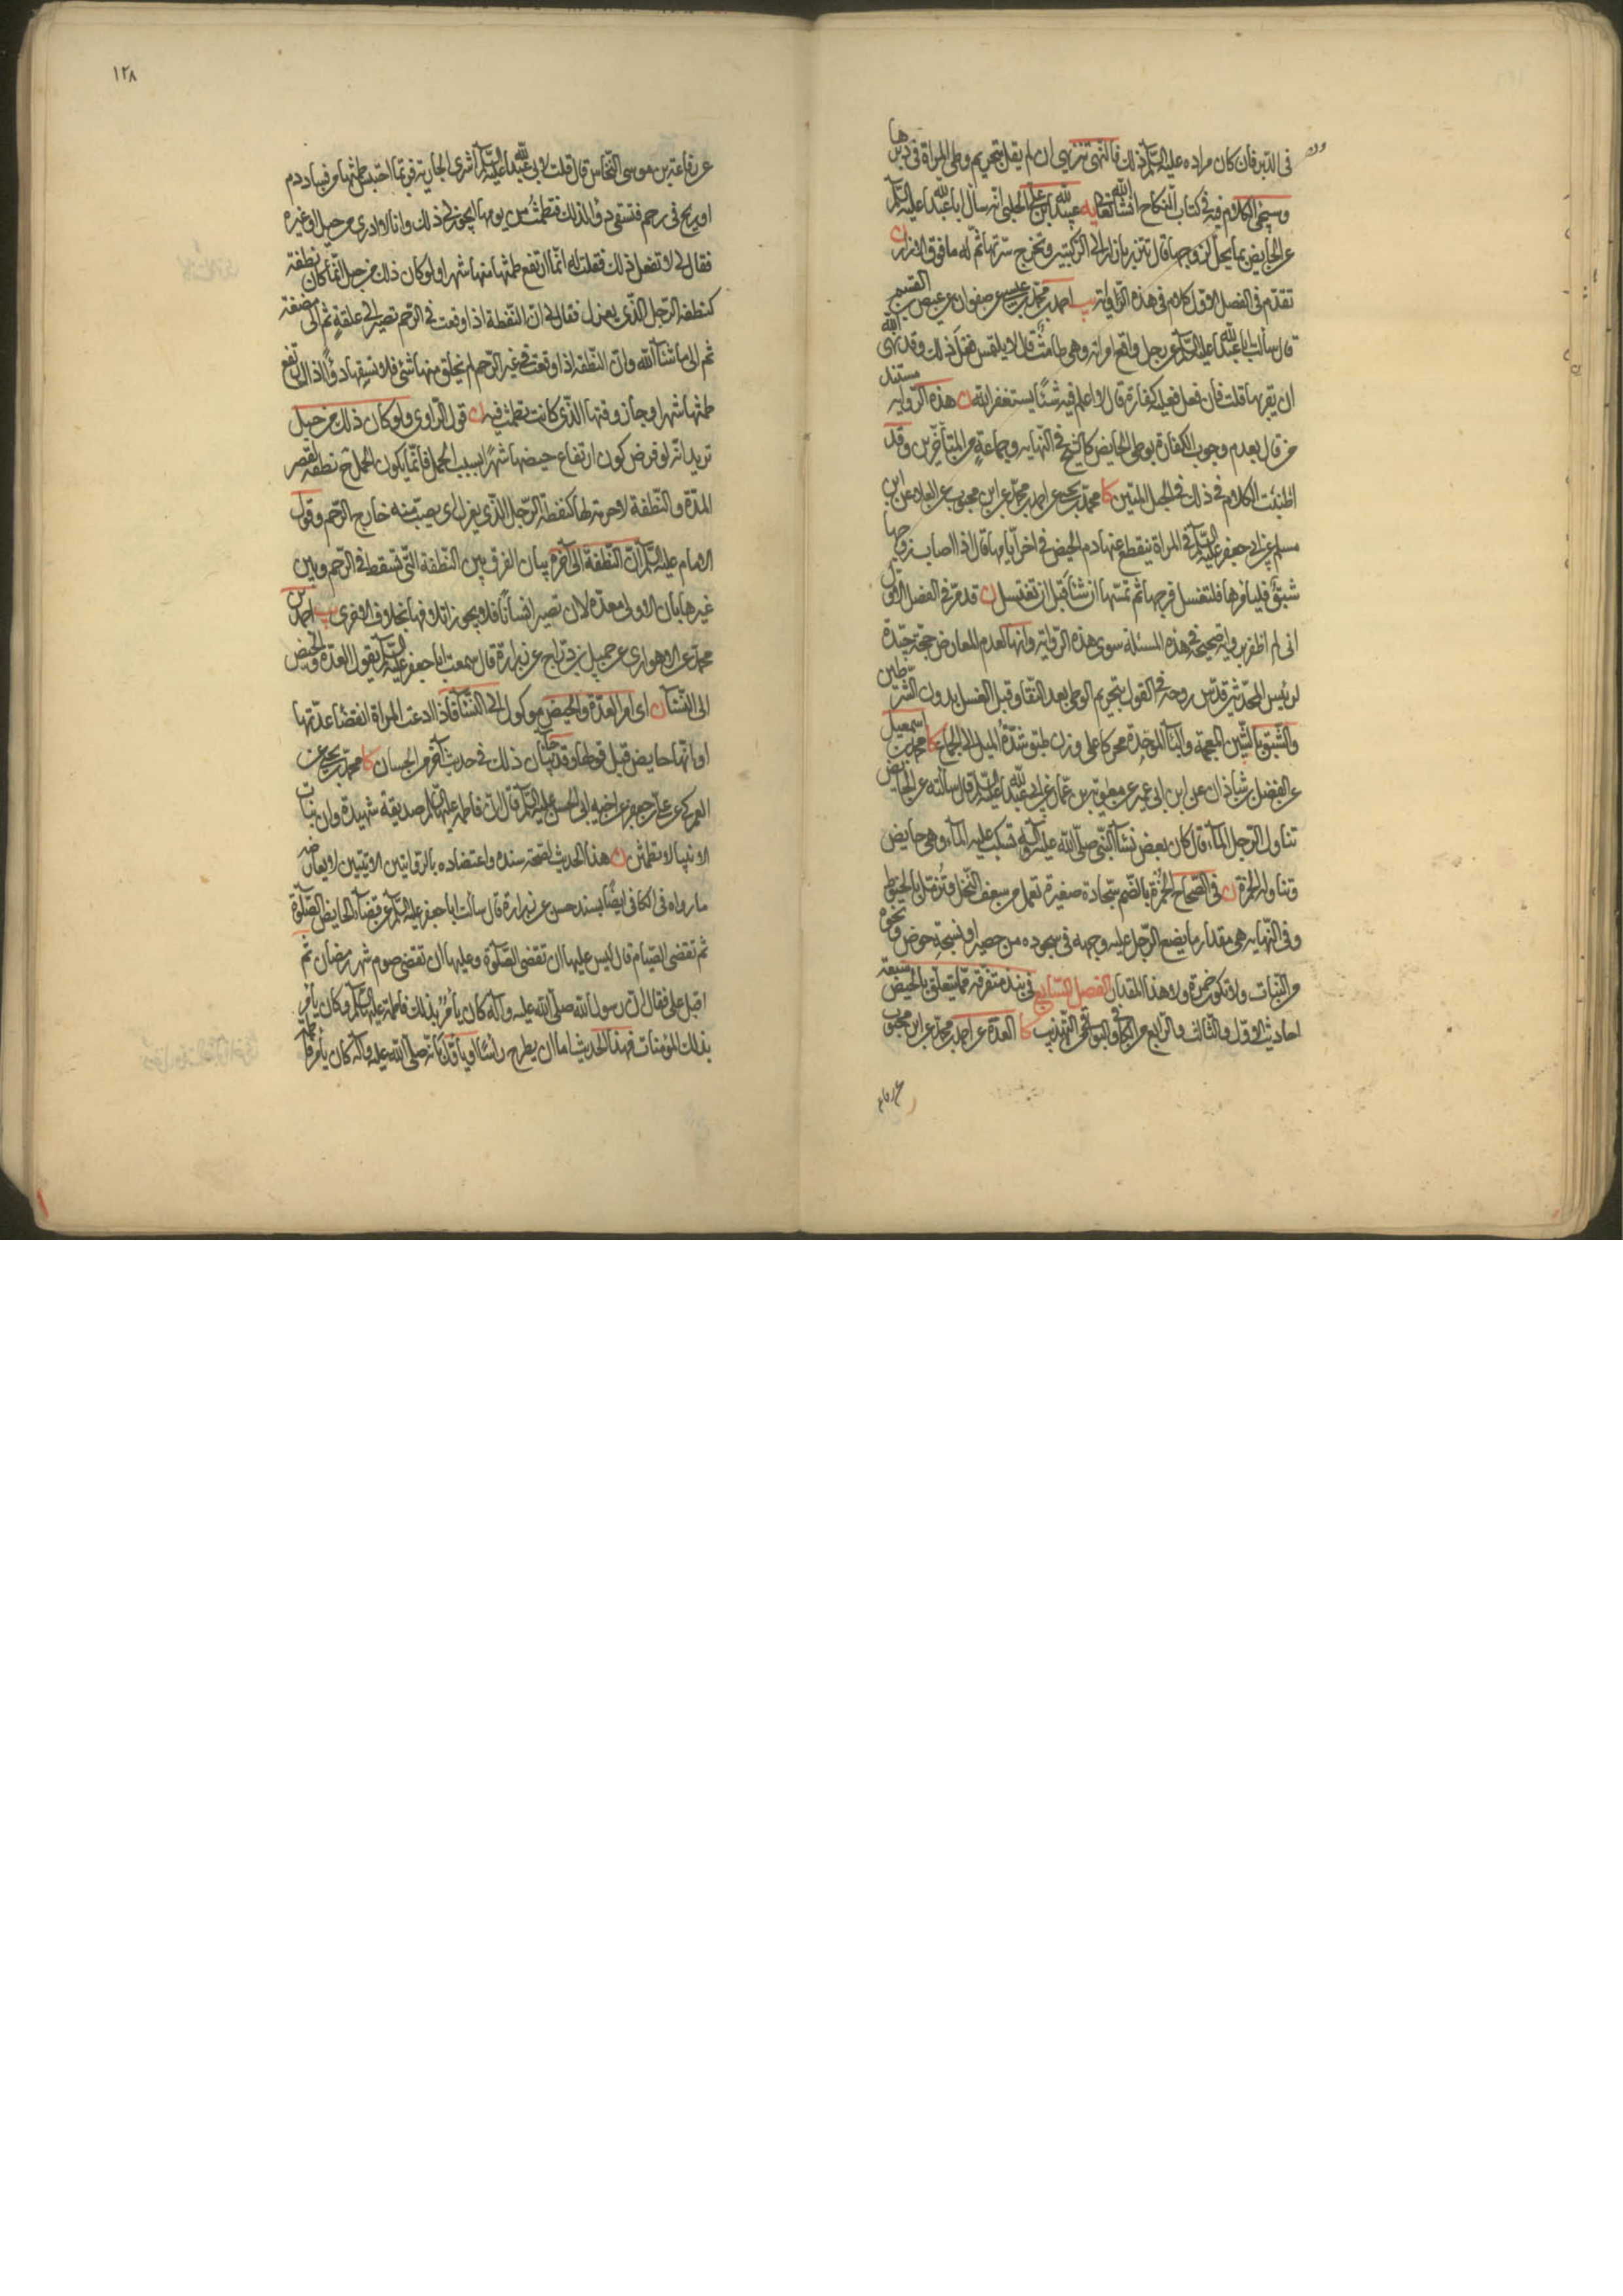 فى الدبر فان كان مراده عليه السلم ذلك فالنهى تنزيهى ان لم يقل بتحريم وطى المراة فى دبرها
وسيجئ الكلام فيه فى كتاب النكاح انشاء الله تعالى يه عبيد الله بن على الحلبى انه سال ابا عبد الله عليه السلم
عن الحايض ما يحل لزوجها قال تتزر بازار الى الركبتين وتخرج سرتها ثم له ما فوق الازار ن
تقدم فى الفصل الاول كلام فى هذه الرواية يب احمد بن محمد بن عيسى عن صفوان عن عيص بن القسم
قال سالت ابا عبد الله عليه السلم عن رجل واقع امراته وهى طامث قال لا يلتمس فعل ذلك وقد نهى الله
ان يقربها قلت فان فعل فعليه كفارة قال لا اعلم فيه شئا يستغفر الله ن هذه الرواية مستند
من قال بعدم وجوب الكفارة بوطى الحايض كالشيخ فى النهايه وجماعة من المتأخرين وقد
اطنبت الكلام فى ذلك فى الحبل المتين كا محمد بن يحيى عن احمد بن محمد عن ابن محبوب عن العلا عن ابن
مسلم عن ابى جعفر عليه السلم فى المراة ينقطع عنها دم الحيض فى اخر ايامها قال اذا اصاب زوجها
شبق فليامرها فلتغسل فرجها ثم يمسها ان شآء قبل ان تغتسل ن قد مر فى الفصل الاول
انى لم اظفر برواية صحيحة فى هذه المسئلة سوى هذه الرواية وانها لعدم المعارض حجة جيدة
لرئيس المحدثين قدس روحه فى القول بتحريم الوطى بعد النقا وقبل الغسل بدون الشرطين
والشبق بالشين المعجمة والبآ الموحدة محركا على وزن طبق شدة الميل الى الجماع كا محمد بن اسمعيل
عن الفضل بن شاذان عن ابن ابى عمير عن معوية بن عمار عن ابى عبد الله عليه السلم قال سالته عن الحايض
تناول الرجل المآء قال كان بعض نسآء النبى صلى الله عليه وآله تسكب عليه المآء وهى حايض
وتناوله الخمرة ن فى الصحاح الخمرة بالضم سجادة صغيرة تعمل من سعف النخل وتزمل بالخيوط
وفى النهايه هى مقدار ما يضع الرجل عليه وجهه فى سجوده من حصير او نسيجة خوص ونحوه
من النبات ولا تكون خمرة الا هذا المقدار الفصل السابع فى نبذ متفرقة مما يتعلق بالحيض سبعة
احاديث الاول والثالث والرابع من الكافى والبواقى من التهذيب كا العدة عن احمد بن محمد عن ابن محبوب
عن رفاعه
١٢٨
عن رفاعة بن موسى النخاس قال قلت لابى عبد الله عليه السلم اشترى الجارية فربما احتبس طمثها من فساد دم
او ريح فى رحم فتسقى دوآء لذلك فتطمث من يومها ايجوز لى ذلك وانا لا ادرى من حبل او غيره
فقال لى لا تفعل ذلك فقلت له انما ارتفع طمثها منها شهرا ولو كان ذلك من حبل انما كان نطفة
كنطفة الرجل الذى يعزل فقال لى ان النطفة اذا وقعت فى الرحم تصير الى علقة ثم الى مضغة
ثم الى ما شآء الله وان النطفة اذا وقعت فى غير الرحم لم يخلق منها شئ فلا تسقها دوآء اذا ارتفع
طمثها شهرا وجاز وقتها الذى كانت تطمث فيه ن قول الراوى ولو كان ذلك من حبل
يريد انه لو فرض كون ارتفاع حيضها شهرا بسبب الحمل فانما يكون الحمل ح نطفة لقصر
المدة والنطفة لا حرمة لها كنطفة الرجل الذى يعزل اى يصب منيه خارج الرحم وقول
الامام عليه السلم ان النطفة الى آخره بيان الفرق بين النطفة التى تسقط فى الرحم وبين
غيرها بان الاولى معدة لان تصير انسانا فلا يجوز اتلافها بخلاف الاخرى يب احمد بن
محمد عن الاهوازى عن جميل بن دراج عن زرارة قال سمعت ابا جعفر عليه السلم يقول العدة والحيض
الى النسآء ن اى امر العدة والحيض موكول الى النسآء فاذا ادعت المراة انقضآء عدتها
او انها حايض قبل قولها وقد جآء بيان ذلك فى حديث آخر من الحسان كا محمد بن يحيى عن
العمركى عن على بن جعفر عن اخيه ابى الحسن عليه السلم قال ان فاطمة عليها السلم صديقة شهيدة وان بنات
الانبيا لا يطمثن ن هذا الحديث لصحة سنده واعتضاده بالروايتين الاتيتين لا يعارضه
ما رواه فى الكافى ايضا بسند حسن عن زرارة قال سألت ابا جعفر عليه السلم عن قضآء الحايض الصلوة
ثم تقضى الصيام قال ليس عليها ان تقضى الصلوة وعليها ان تقضى صوم شهر رمضان ثم
اقبل على فقال ان رسول الله صلى الله عليه وآله كان يأمر بذلك فاطمة عليها السلم وكان يأمر
بذلك المؤمنات فهذا الحديث اما ان يطرح رأسا او ياول بانه صلى الله عليه وآله كان يأمر فاطمة